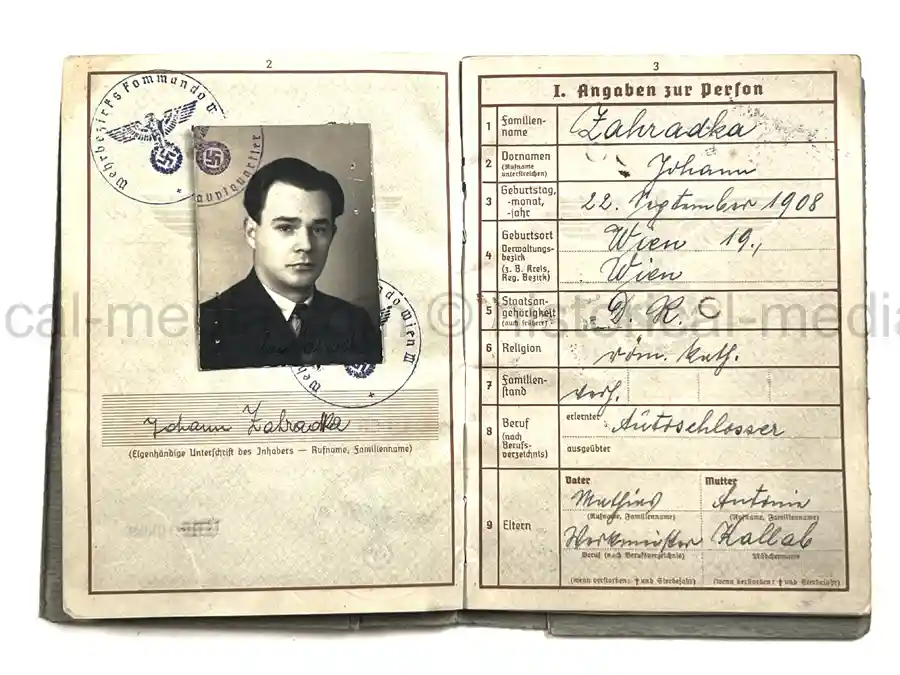 2
Wehrbezirks Kommando W
Hauptquartier
Wehrbezirkskommando Wien III
Johann Zahradka
(Eigenhändige Unterschrift des Inhabers — Rufname, Familienname)
3
I. Angaben zur Person
1 Familien-
name
Zahradka
2 Vornamen
(Rufname
unterstreichen)
Johann
3 Geburtstag,
-monat,
-jahr
22. September 1908
4 Geburtsort
Verwaltungs-
bezirk
(z. B. Kreis,
Reg. Bezirk)
Wien 19.,
Wien
5 Staatsan-
gehörigkeit
(auch frühere)
D. R.
6 Religion
röm. kath.
7 Familien-
stand
verh.
8 Beruf
(nach
Berufs-
verzeichnis)
erlernter
Autoschlosser
ausgeübter
9 Eltern
Vater
Mathias
(Rufname, Familienname)
Werkmeister
Beruf (nach Berufsverzeichnis)
(wenn verstorben: † und Sterbejahr)
Mutter
Antonie
(Rufname, Familienname)
Kallab
Mädchenname
(wenn verstorben: † und Sterbejahr)
cal-media.com © historical-media